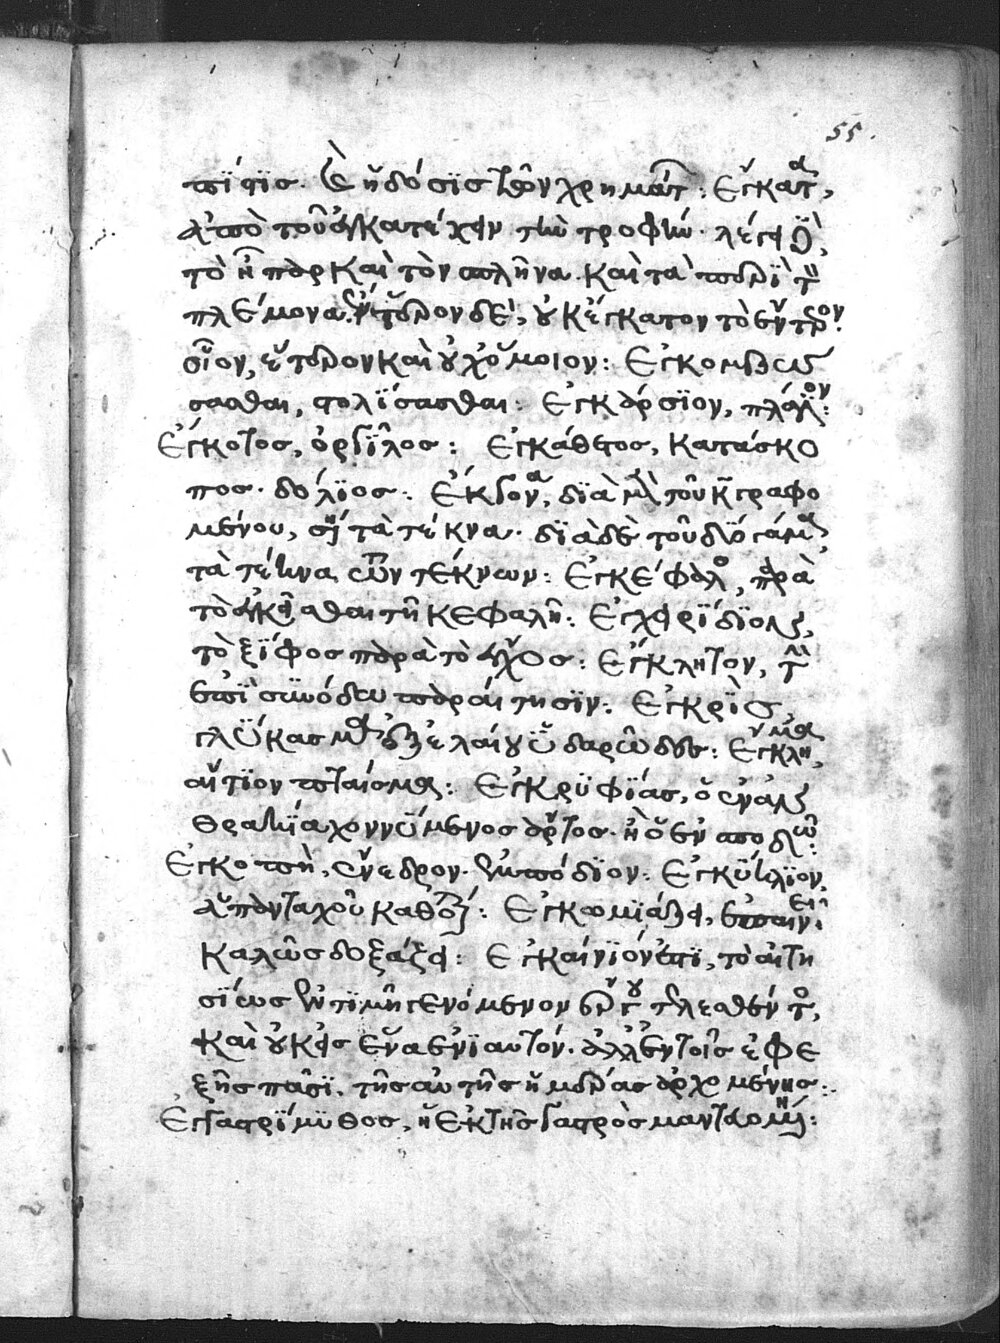 55.
πίτις. ἢ δόσις τῶν χρημάτ: Ἔγκατα,
ἀπὸ τοῦ ἐγκατέχειν τὴν τροφήν. λέγει δὲ,
τὸ ἧπαρ καὶ τὸν σπλῆνα. καὶ τὰ περὶ τὸν
πλεύμονα. ἔντερον δὲ, οὐκ ἔγκατον τὸ ἔντερον.
ον, ἔντερον καὶ οὐχ ὅμοιον: Ἐγκομβώ
σασθαι, στολίσασθαι: Ἐγκάρσιον, πλάγιον:
Ἔγκοτος, ὀργίλος: Ἐγκάθετος, κατάσκο
πος. δόλιος: Ἔκγονα, διὰ μὲν τοῦ κ γραφο
μένου, τὰ τέκνα. διὰ δὲ τοῦ δύο γάμμα,
τὰ τέκνα τῶν τέκνων: Ἐγκέφαλος, παρὰ
τὸ ἐγκεῖσθαι τῇ κεφαλῇ: Ἐγχειρίδιον,
τὸ ξίφος παρὰ τὸ ἔγχος: Ἔγκλητον, τὴν
ἐπὶ συνόδου παραίτησιν: Ἐγκρὶς,
γλύκασμα ἐξ ἐλαίου ὑδαρῶδες: Ἔγκλημα,
αἴτιον πταίσμα: Ἐγκρυφίας, ὁ ἐν
θρακίᾳ χοννύμενος ἄρτος. ἢ ὁ ἐν σποδῷ:
Ἐγκοπὴ, ἔνεδρον. ἐμπόδιον: Ἐγκύκλιον,
πανταχοῦ καθ: Ἐγκωμιάζει, ἐπαινεῖ.
καλῶς δοξάζει: Ἐγκαίνιόν ἐστι, τὸ αἰτη
σίως τιμὴ γενόμενον
καὶ οὐκ εἰς ἕνα ἐνιαυτόν. ἀλλ' ἐν τοῖς ἐφε
ξῆς πᾶσι. τῆς αὐτῆς ἡμέρας ἀρχομένης:
Ἐγγαστρίμυθος, ἢ ἐκ τῆς γαστρὸς μαντευομένη: